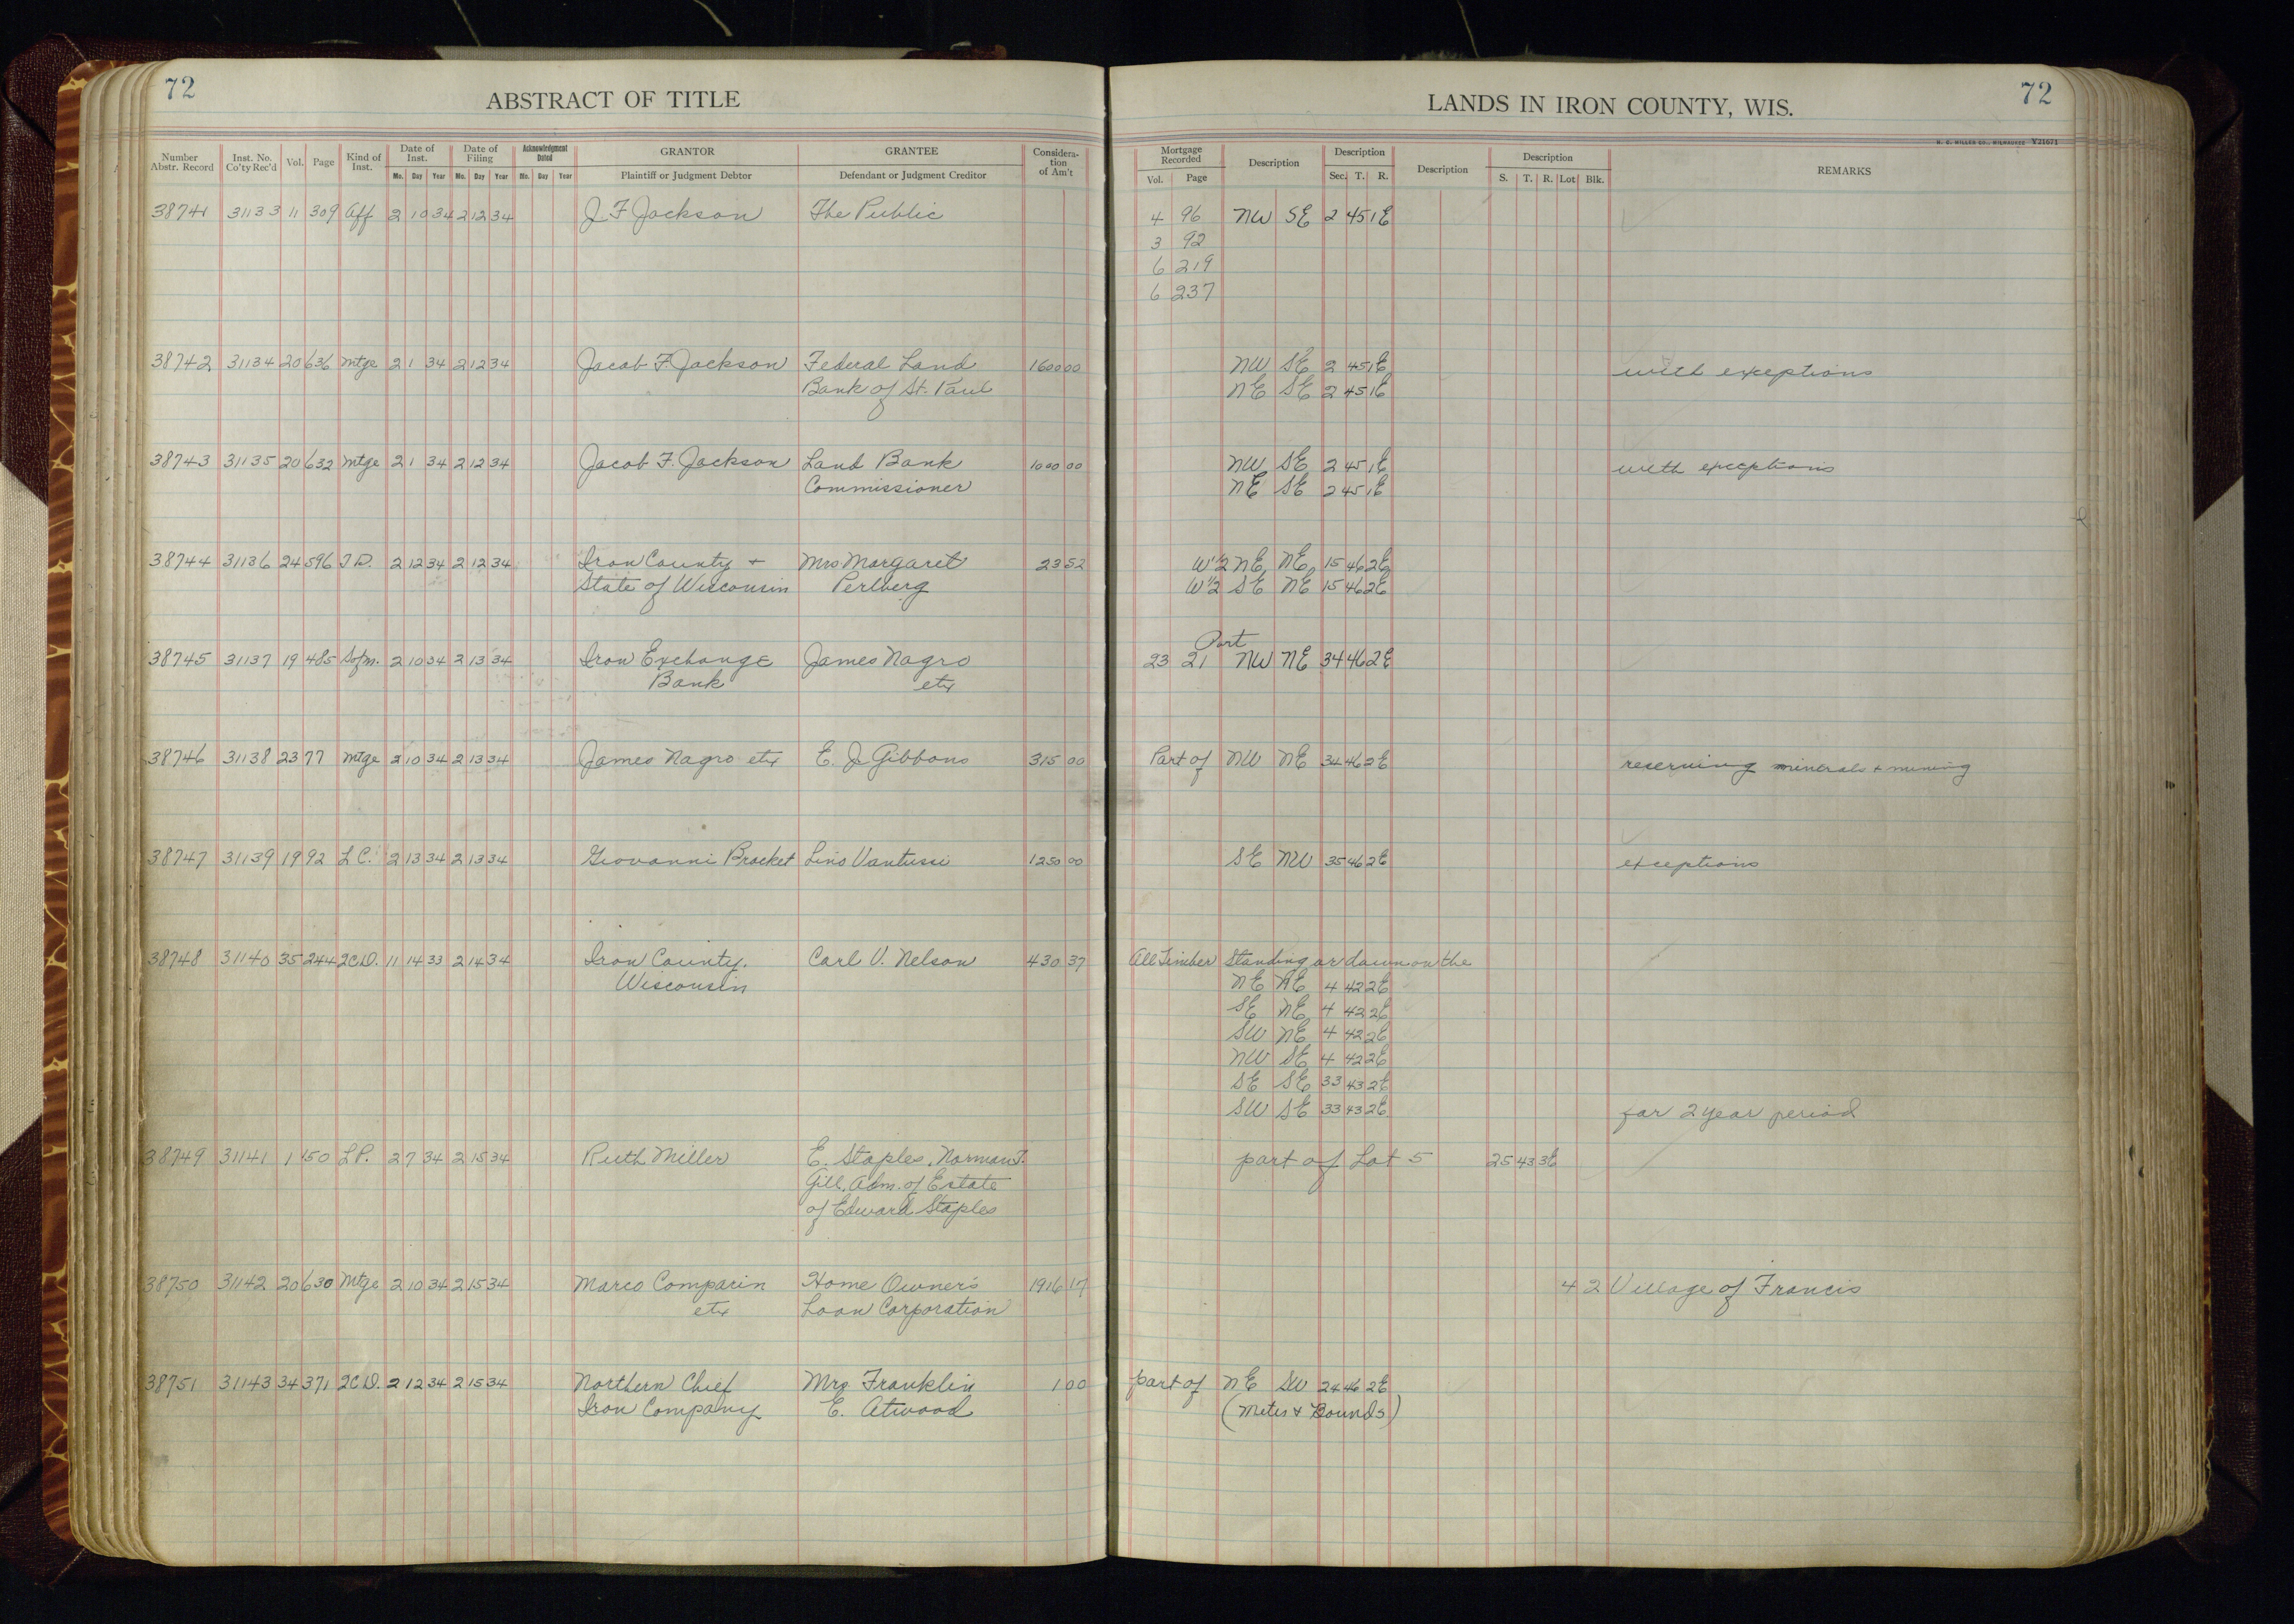 72
ABSTRACT OF TITLE
Number Abstr. Record
Inst. No. Co'ty Rec'd
Vol.
Page
Kind of Inst.
Date of Inst.
Mo. Day Year
Date of Filing
Mo. Day Year
Acknowledgment Dated
Mo. Day Year
GRANTOR
Plaintiff or Judgment Debtor
GRANTEE
Defendant or Judgment Creditor
Considera-tion of Am't
38741 31133 11 309 Aff 2 10 34 2 12 34 J F Jackson The Public
38742 31134 20 636 Mtge 2 1 34 2 12 34 Jacob F. Jackson Federal Land 1600 00
Bank of St. Paul
38743 31135 20 632 Mtge 2 1 34 2 12 34 Jacob F. Jackson Land Bank 1000 00
Commissioner
38744 31136 24 596 T D. 2 12 34 2 12 34 Iron County + Mrs Margaret 23 52
State of Wisconsin Perlberg
38745 31137 19 485 Sofm. 2 10 34 2 13 34 Iron Exchange James Nagro
Bank etx
38746 31138 23 77 Mtge 2 10 34 2 13 34 James Nagro etx E. J. Gibbons 315 00
38747 31139 19 92 L C. 2 13 34 2 13 34 Giovanni Brocket Lino Vantussi 1250 00
38748 31140 35 244 2CD. 11 14 33 2 14 34 Iron County, Carl V. Nelson 430 37
Wisconsin
38749 31141 1 150 L P. 2 7 34 2 15 34 Ruth Miller E. Staples, Norman T.
Gill, Adm. of Estate
of Edward Staples
38750 31142 20 630 Mtge 2 10 34 2 15 34 Marco Comparin Home Owner's 1916 17
etx Loan Corporation
38751 31143 34 371 2CD. 2 12 34 2 15 34 Northern Chief Mrs Franklin 1 00
Iron Company E. Atwood
72
LANDS IN IRON COUNTY, WIS.
H. C. MILLER CO., MILWAUKEE Y21671
Mortgage Recorded
Vol. Page
Description
Description
Sec. T. R.
Description
Description
S. T. R. Lot Blk.
REMARKS
4 96 NW SE 2 45 1E
3 92
6 219
6 237
NW SE 2 45 1E with exceptions
NE SE 2 45 1E
NW SE 2 45 1E with exceptions
NE SE 2 45 1E
W½ NE NE 15 46 2E
W½ SE NE 15 46 2E
Part
23 21 NW NE 34 46 2E
Part of NW NE 34 46 2E reserving minerals + mining
SE NW 35 46 2E exceptions
All Timber standing or down on the
NE NE 4 42 2E
SE NE 4 42 2E
SW NE 4 42 2E
NW SE 4 42 2E
SE SE 33 43 2E
SW SE 33 43 2E for 2 year period
part of Lot 5 25 43 3E
4 2 Village of Francis
part of NE SW 24 46 2E
(Metes & Bounds)